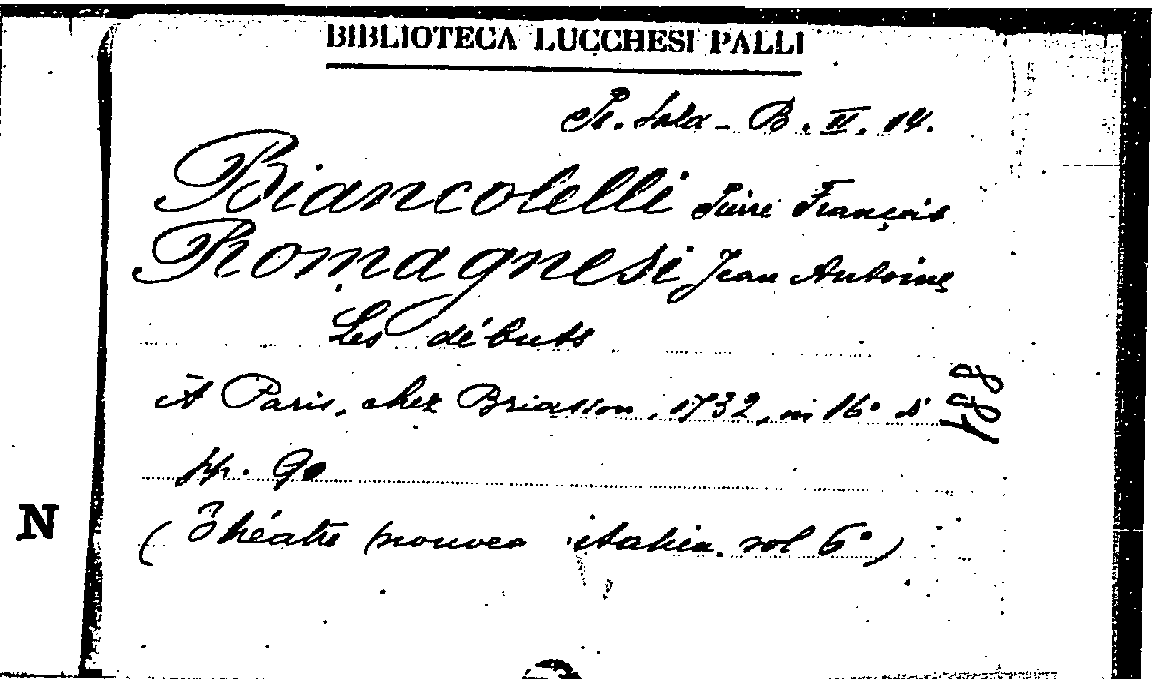 BIBLIOTECA LUCCHESI PALLI
Pr. Sala - B. II. 14.
Biancolelli Pierre François
Romagnesi Jean Antoine
Les débuts
A Paris, chez Briasson, 1732, in 16° di
pp. 90
(Théatre nouveau italien vol 6°)
N